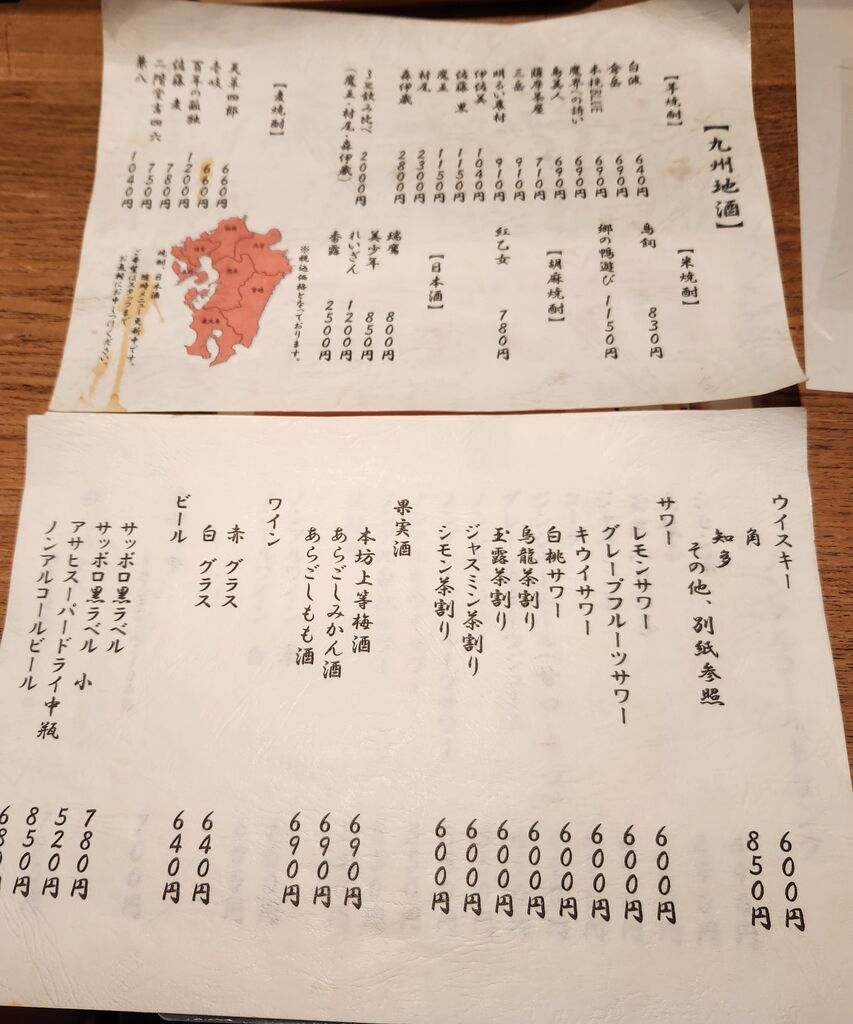 【九州地酒】
【芋焼酎】
白波 640円
倉岳 690円
木挽BLUE 690円
魔界への誘い 690円
島美人 690円
薩摩茶屋 710円
三岳 910円
明るい農村 910円
伊佐美 1040円
佐藤 黒 1150円
魔王 1150円
村尾 2300円
森伊蔵 2800円
3種飲み比べ 2000円
(魔王・村尾・森伊蔵)
【麦焼酎】
天草四郎 660円
壱岐 660円
百年の孤独 1200円
佐藤 麦 780円
二階堂吉四六 750円
兼八 1040円
【米焼酎】
鳥飼 830円
郷の鴨遊び 1150円
【胡麻焼酎】
紅乙女 780円
【日本酒】
瑞鷹 800円
美少年 850円
れいざん 1200円
香露 2500円
※税込価格となっております。
焼酎、日本酒 随時メニュー更新中です。
ご希望はスタッフまで
お気軽にお申しつけください。
ウイスキー
角 600円
知多 850円
その他、別紙参照
サワー
レモンサワー 600円
グレープフルーツサワー 600円
キウイサワー 600円
白桃サワー 600円
烏龍茶割り 600円
玉露茶割り 600円
ジャスミン茶割り 600円
シモン茶割り 600円
果実酒
本坊上等梅酒 690円
あらごしみかん酒 690円
あらごしもも酒 690円
ワイン
赤 グラス 640円
白 グラス 640円
ビール
サッポロ黒ラベル 780円
サッポロ黒ラベル 小 520円
アサヒスーパードライ中瓶 850円
ノンアルコールビール 680円